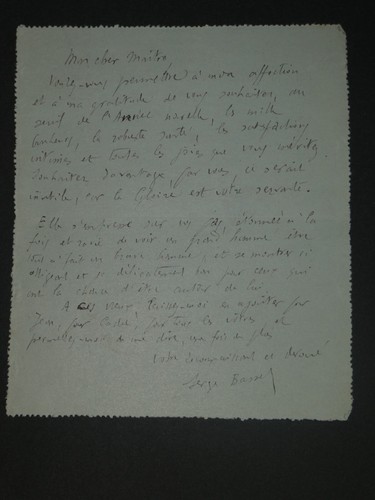 Mon cher Maître,
Voulez-vous permettre à mon affection
et à ma gratitude de vous souhaiter, au
seuil de l'Année nouvelle, les mille
bonheurs, la robuste santé, les satisfactions
intimes et toutes les joies que vous méritez.
Souhaiter davantage, pour vous, ce serait
inutile, car la Gloire est votre servante.
Elle s'empresse sur vos pas, étonnée à la
fois et ravie de voir un grand homme être
tout à fait un brave homme, et se montrer si
obligeant et si délicatement bon pour ceux qui
ont la chance d'être autour de lui.
A ces vœux, laissez-moi en ajouter pour
Jean, pour André, pour tous les vôtres et
permettez-moi de me dire, une fois de plus
votre reconnaissant et dévoué
Serge Basset